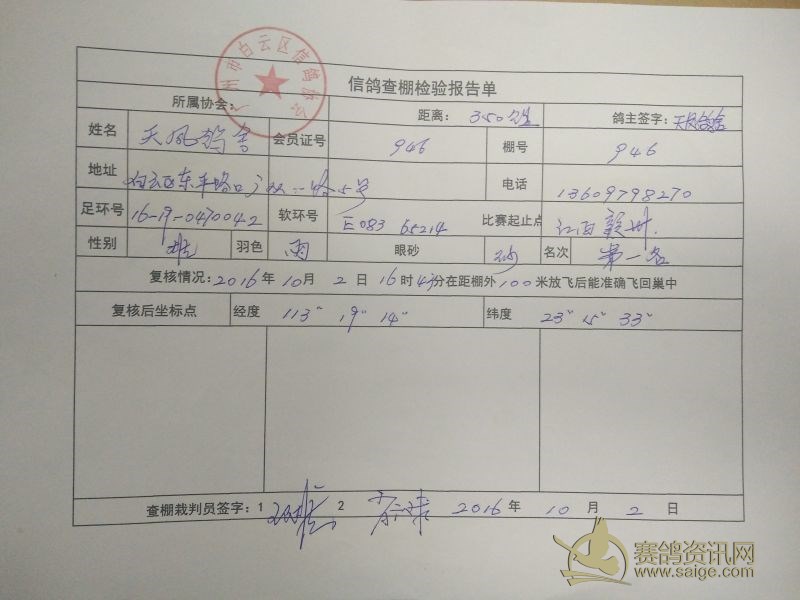 信鸽查棚检验报告单
州市白云区信鸽协会
所属协会： 距离： 350公里 鸽主签字：天风鸽舍
姓名 天风鸽舍 会员证号 946 棚号 946
地址 白云区东平 电话 13609798270
足环号 16-19-0470042 软环号 E083 65214 比赛起止点 江西赣州.
性别 雄 羽色 雨 眼砂 砂 名次 第一名
复核情况：2016 年 10 月 2 日 16 时 分在距棚外 100 米放飞后能准确飞回巢中
复核后坐标点 经度 113° 19" 14" 纬度 23° 15" 33"
查棚裁判员签字：1 2 2016 年 10 月 2 日
赛鸽资讯网
www.saige.com